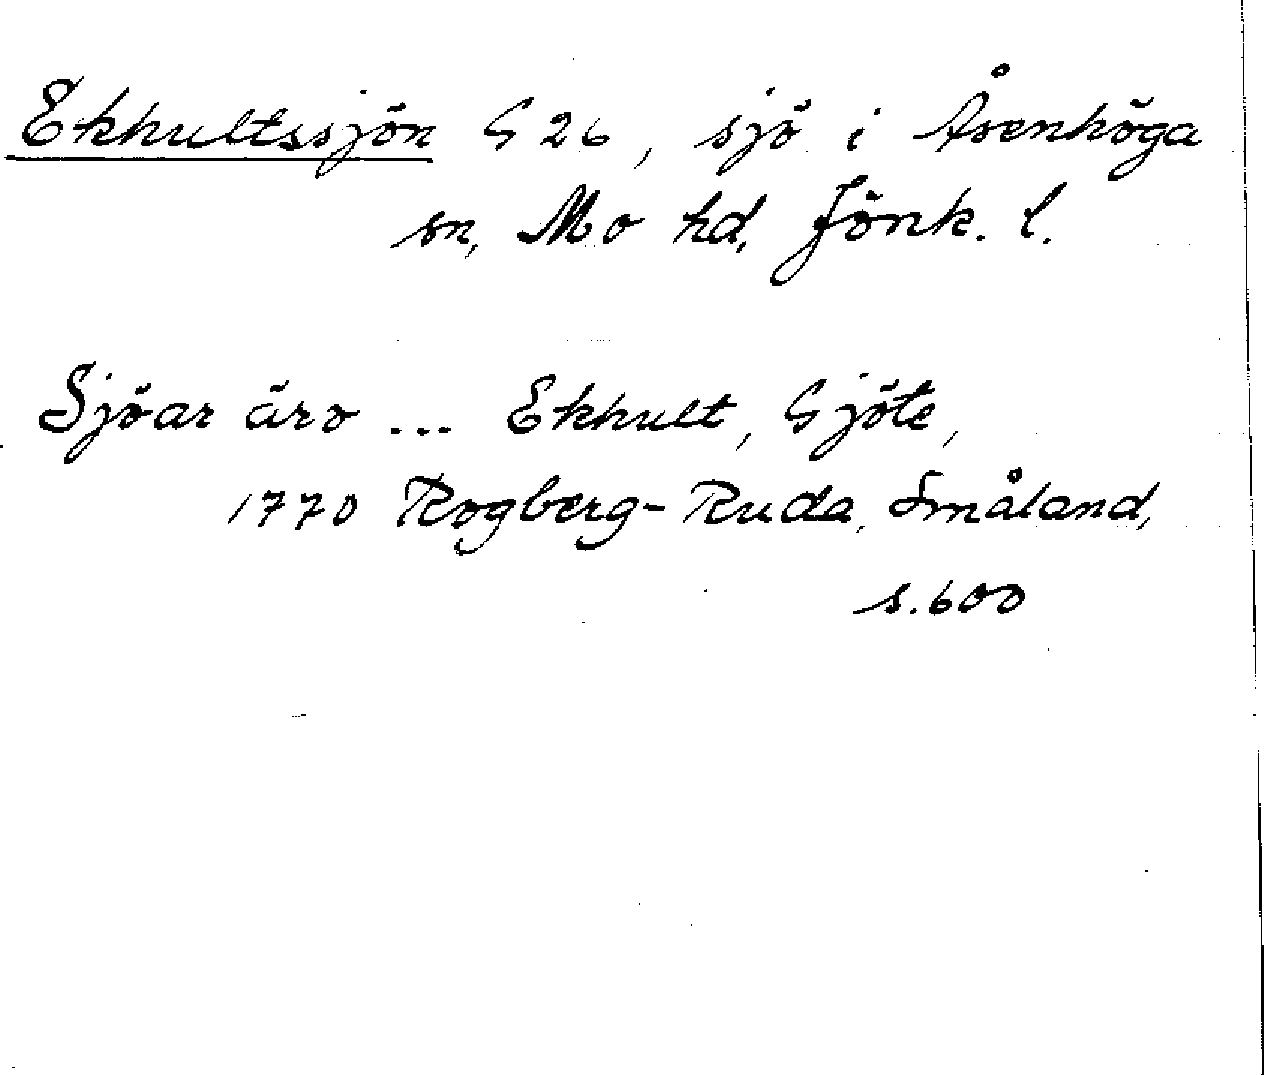 Ekhultssjön G 26, sjö i Åsenhöga
sn, Mo hd, Jönk. l.
Sjöar äro ... Ekhult, Gjöte,
1770 Rogberg-Ruda, Småland,
s. 600